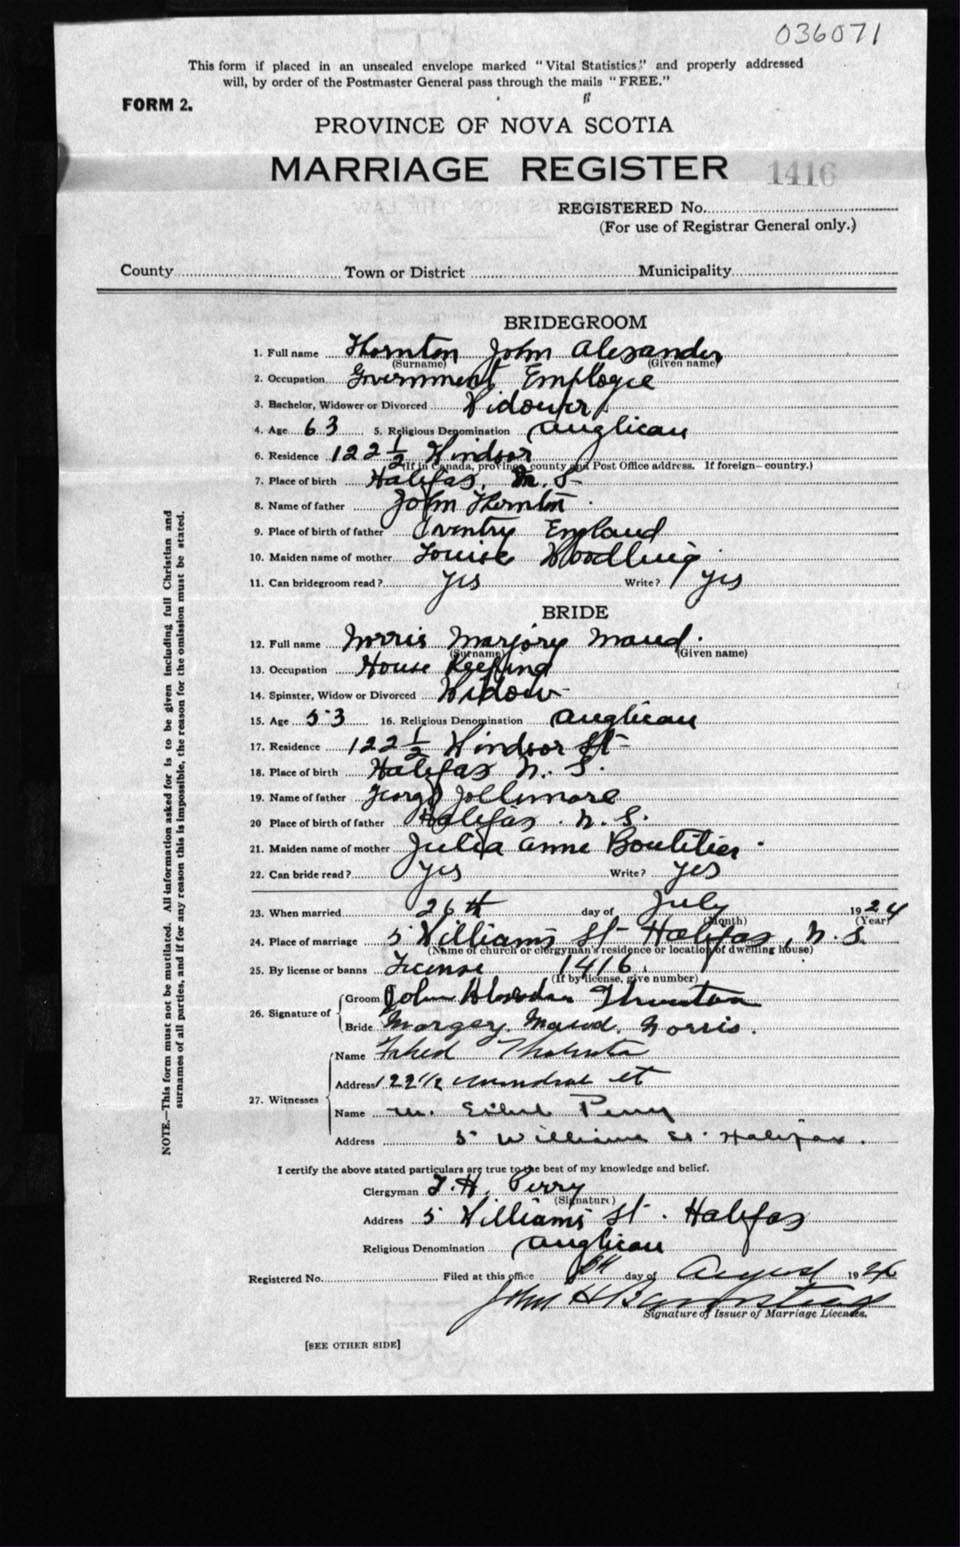 036071
This form if placed in an unsealed envelope marked "Vital Statistics," and properly addressed
will, by order of the Postmaster General pass through the mails "FREE."
FORM 2.
PROVINCE OF NOVA SCOTIA
MARRIAGE REGISTER 1416
REGISTERED No.
(For use of Registrar General only.)
County Town or District Municipality
BRIDEGROOM
1. Full name Thornton John Alexander
(Surname) (Given name)
2. Occupation Government Employee
3. Bachelor, Widower or Divorced Widower
4. Age 63 5. Religious Denomination Anglican
6. Residence 122 1/2 Windsor
(If in Canada, province, county and Post Office address. If foreign—country.)
7. Place of birth Halifax, N.S.
8. Name of father John Thornton
9. Place of birth of father Coventry England
10. Maiden name of mother Louise Woodling
11. Can bridegroom read? Yes Write? Yes
BRIDE
12. Full name Norris Marjory Maud.
(Surname) (Given name)
13. Occupation House Keeping
14. Spinster, Widow or Divorced Widow
15. Age 53 16. Religious Denomination Anglican
17. Residence 122 1/2 Windsor St
18. Place of birth Halifax N. S.
19. Name of father George Jollimore
20 Place of birth of father Halifax. N. S.
21. Maiden name of mother Julia Anne Boutilier.
22. Can bride read? Yes Write? Yes
23. When married 26th day of July 1924
(Month) (Year)
24. Place of marriage 5 Williams St Halifax, N.S.
(Name of church or clergyman's residence or location of dwelling house)
25. By license or banns License 1416
(If by license, give number)
26. Signature of Groom John Thornton
Bride Margery Maud. Norris.
27. Witnesses Name
Address 122 1/2 St
Name M. Perry
Address 5 Williams St. Halifax.
I certify the above stated particulars are true to the best of my knowledge and belief.
Clergyman T. H. Perry
(Signature)
Address 5 Williams St. Halifax
Religious Denomination Anglican
Registered No. Filed at this office day of August 192
John H
Signature of Issuer of Marriage Licenses.
[SEE OTHER SIDE]
NOTE.—This form must not be mutilated. All information asked for is to be given including full Christian and
surnames of all parties, and if for any reason this is impossible, the reason for the omission must be stated.